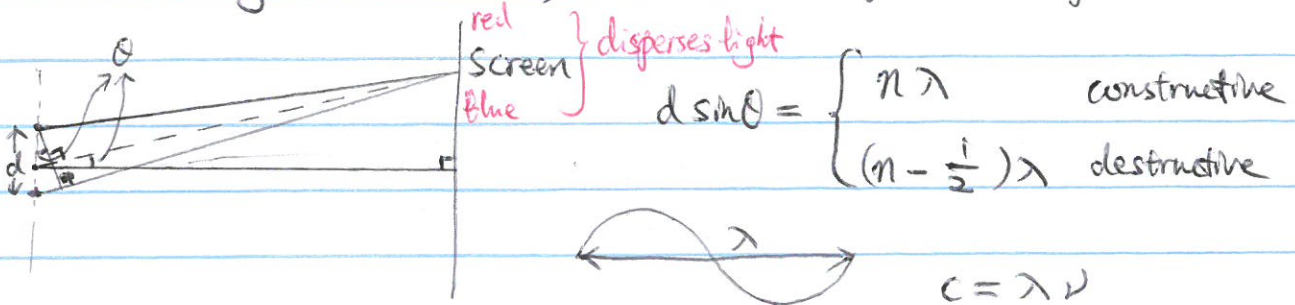 red
θ
Screen
} disperses light
blue
d
d sinθ = { nλ constructive
(n - 1/2)λ destructive
λ
c = λν